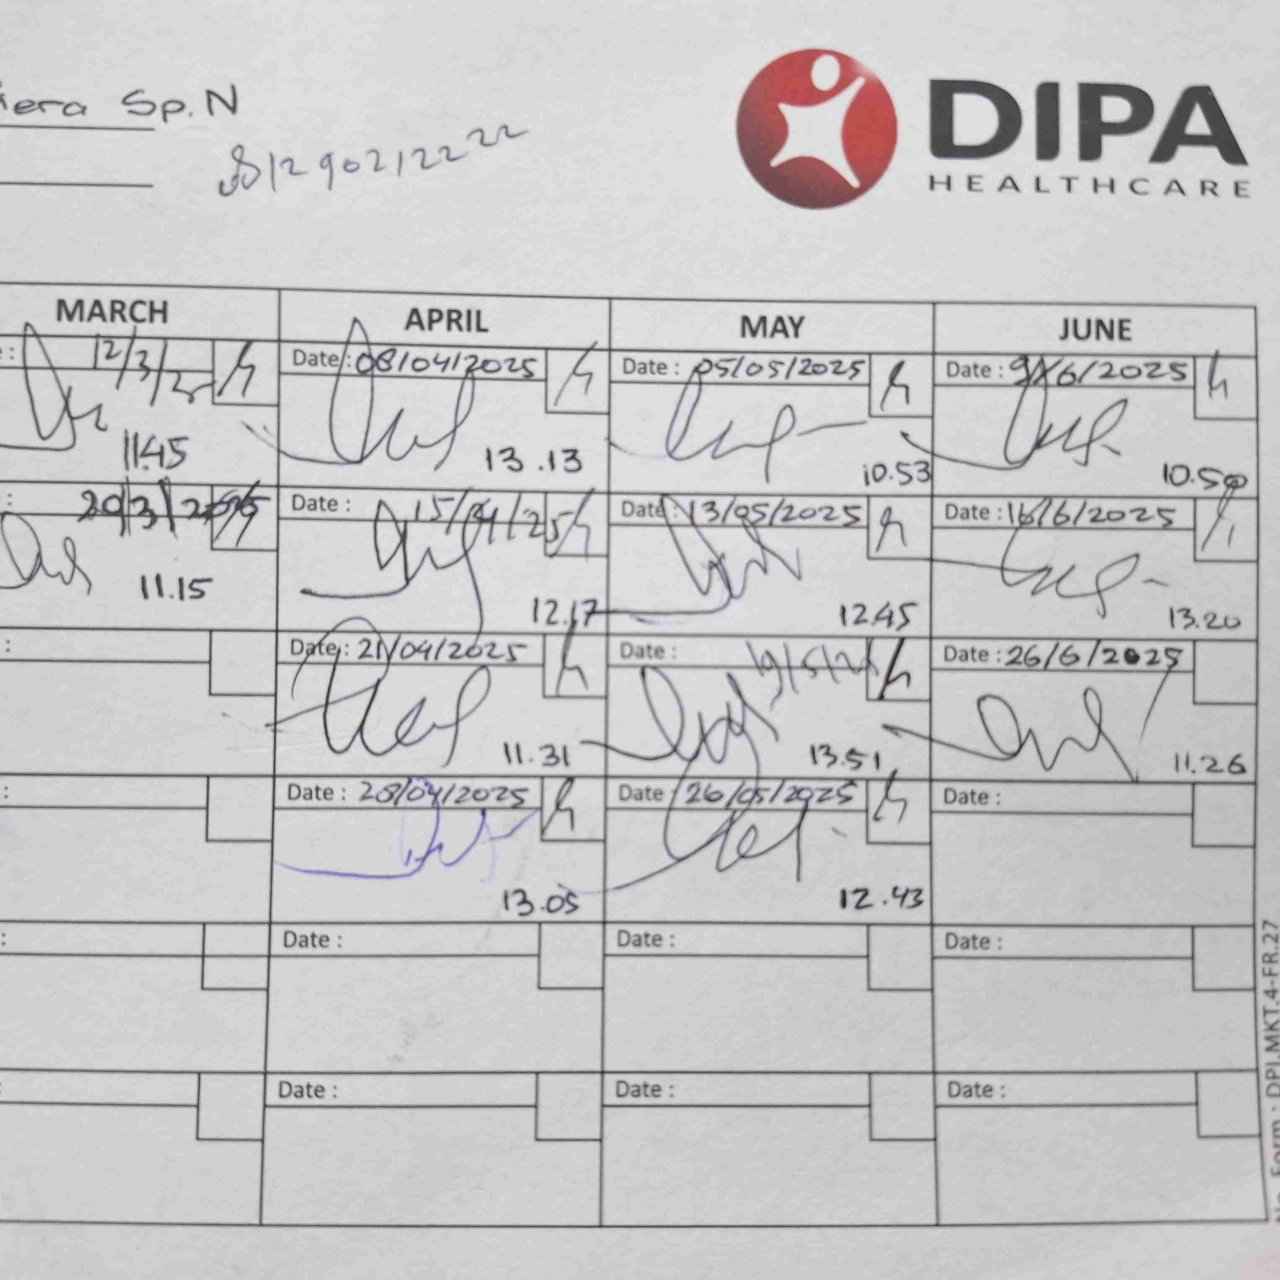 iera Sp.N
DIPA
HEALTHCARE
081290212222
MARCH APRIL MAY JUNE
: 12/3/25 Date : 08/04/2025 Date : 05/05/2025 Date : 9/6/2025
11.45 13.13 10.53 10.50
: 20/3/2025 Date : 15/04/25 Date : 13/05/2025 Date : 16/6/2025
11.15 12.17 12.45 13.20
: Date : 21/04/2025 Date : 19/5/25 Date : 26/6/2025
11.31 13.51 11.26
: Date : 28/04/2025 Date : 26/05/2025 Date :
13.05 12.43
: Date : Date : Date :
: Date : Date : Date :
Form : DPI.MKT.4-FR.27